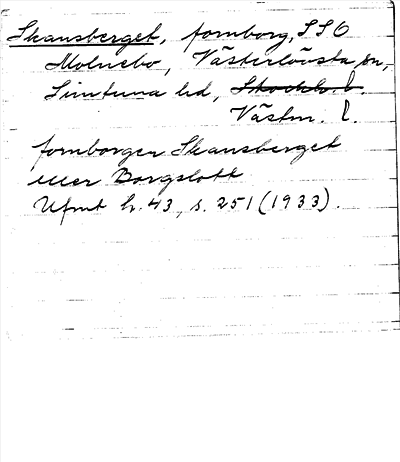 Skansberget, fornborg, SSO
Molnebo, Västerlövsta sn,
Simtuna hd, Stockh. l.
Västm. l.
fornborgen Skansberget
eller Borgslott
Ufmt h. 43, s. 251 (1933).